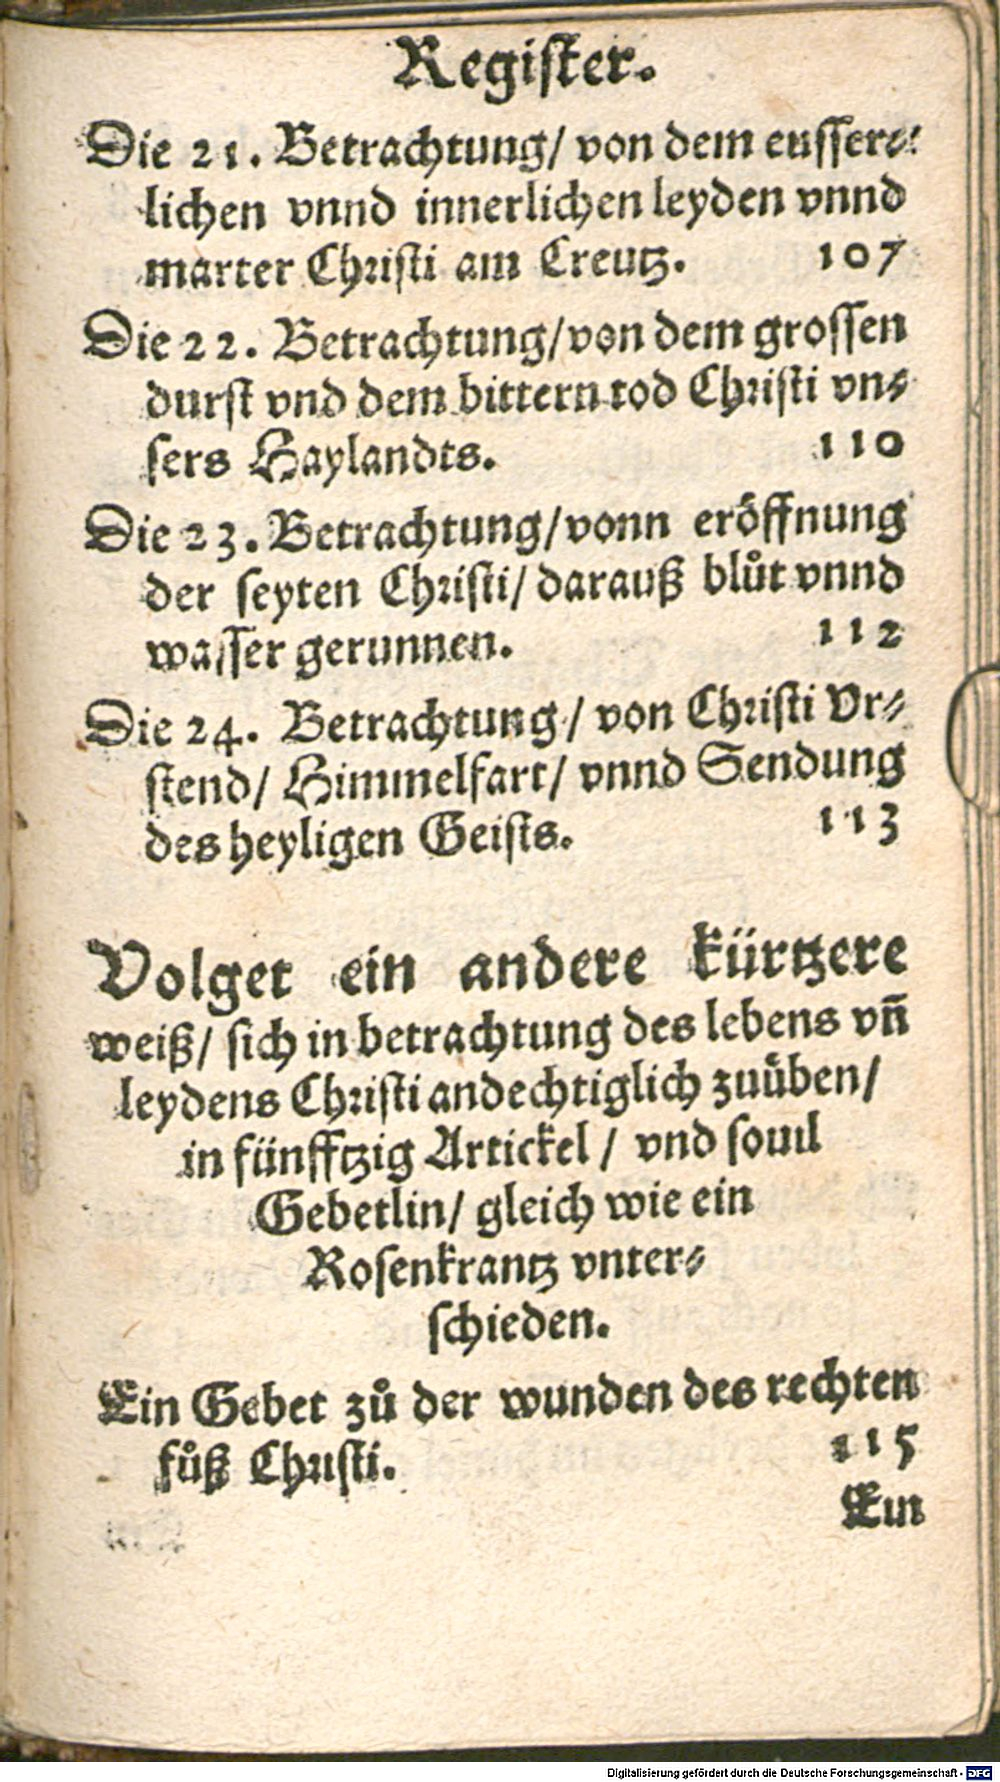 Register.
Die 21. Betrachtung/ von dem eusser⸗
lichen vnnd innerlichen leyden vnnd
marter Christi am Creutz. 107
Die 22. Betrachtung/ von dem grossen
durst vnd dem bittern tod Christi vn⸗
sers Haylandts. 110
Die 23. Betrachtung/ vonn eröffnung
der seyten Christi/ darauß blůt vnnd
wasser gerunnen. 112
Die 24. Betrachtung/ von Christi Vr⸗
stend/ Himmelfart/ vnnd Sendung
des heyligen Geists. 113
Volget ein andere kürtzere
weiß/ sich in betrachtung des lebens vñ
leydens Christi andechtiglich zuüben/
in fünfftzig Artickel/ vnd souil
Gebetlin/ gleich wie ein
Rosenkrantz vnter⸗
schieden.
Ein Gebet zů der wunden des rechten
fůß Christi. 115
Ein
Digitalisierung gefördert durch die Deutsche Forschungsgemeinschaft - DFG